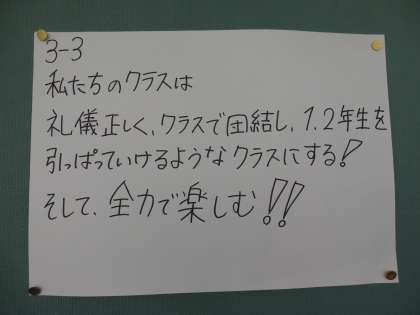 3-3
私たちのクラスは
礼儀正しく、クラスで団結し、1.2年生を
引っぱっていけるようなクラスにする!
そして、全力で楽しむ!!